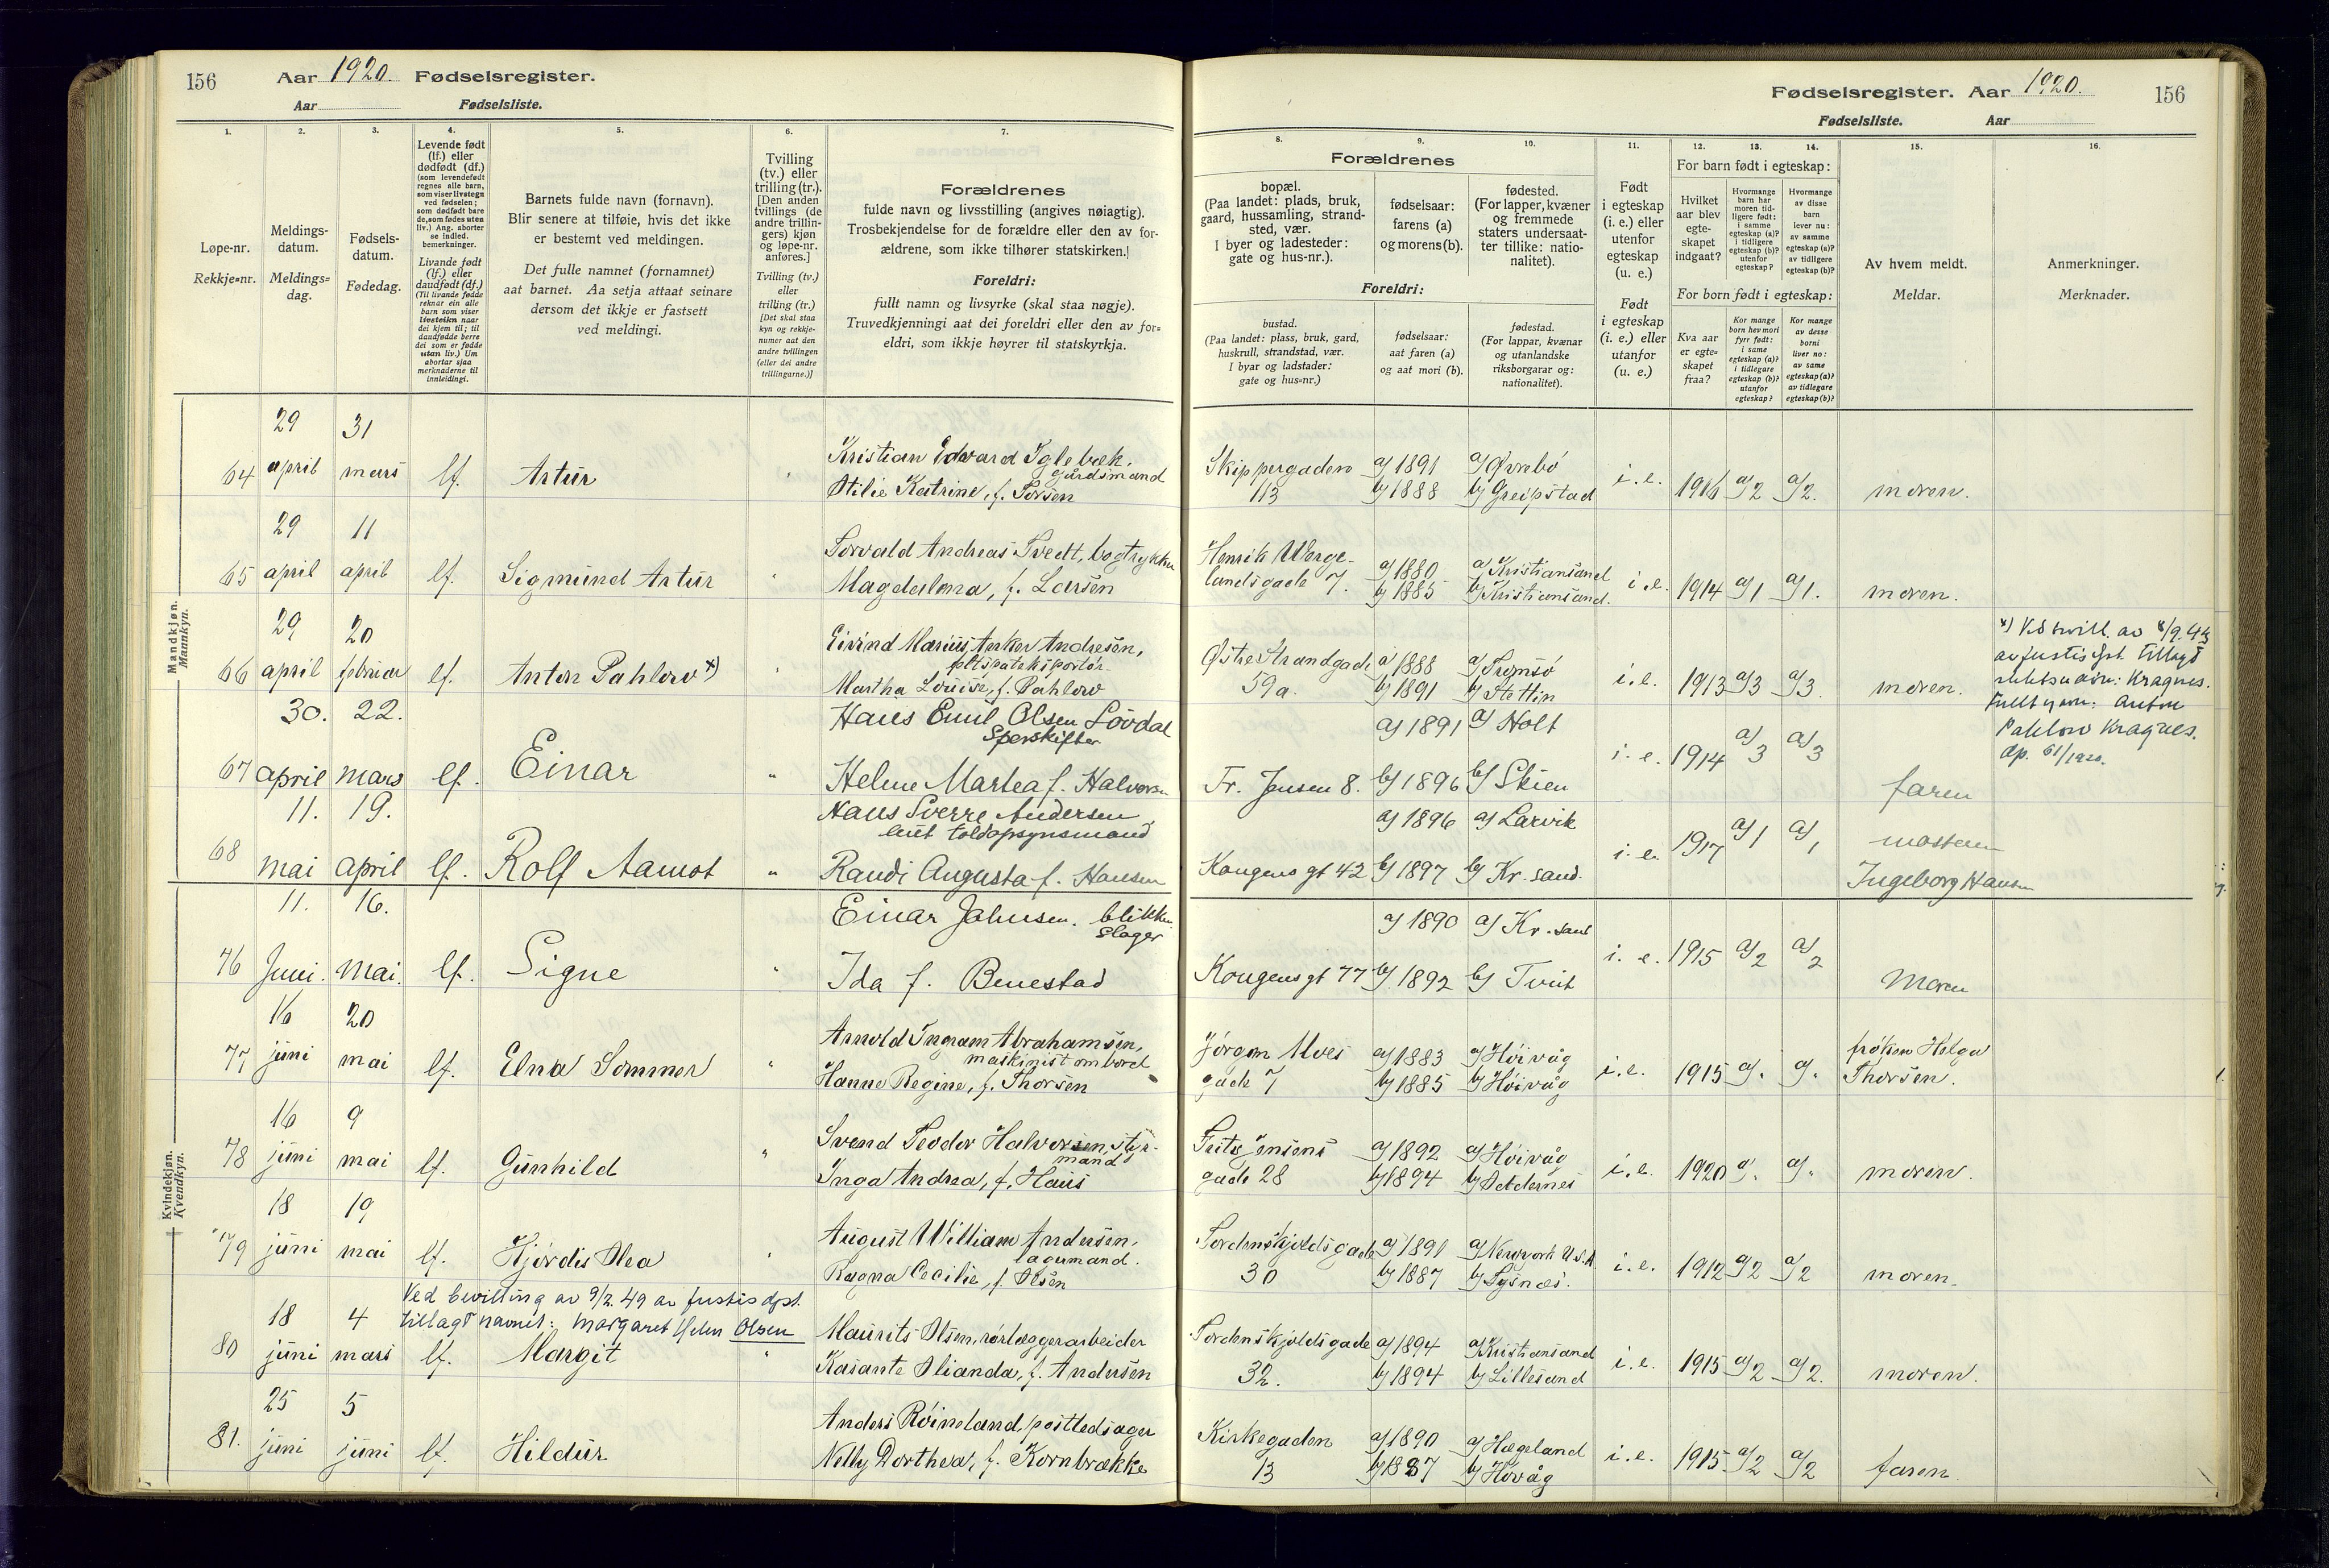 156 Aar 1920. Fødselsregister.
Aar Fødselsliste.
1. 2. 3. 4. 5. 6. 7.
Løpe-nr.
Rekkje=nr.
Meldings-
datum.
Meldings=
dag.
Fødsels-
datum.
Fødedag.
Levende født
(lf.) eller
dødfødt (df.)
(som levendefødt
regnes alle barn,
som viser livstegn
ved fødselen;
som dødfødt bare
de, som fødes uten
liv.) Ang. aborter
se indled.
bemerkninger.
Livande født
(lf.) eller
daudfødt (df.)
(Til livande fødde
reknar ein alle
barn som viser
livsteikn naar
dei kjem til; til
daudfødde berre
dei som er fødde
utan liv.) Um
abortar sjaa
merknaderne til
innleidingi.
Barnets fulde navn (fornavn).
Blir senere at tilføie, hvis det ikke
er bestemt ved meldingen.
Det fulle namnet (fornamnet)
aat barnet. Aa setja attaat seinare
dersom det ikkje er fastsett
ved meldingi.
Tvilling
(tv.) eller
trilling (tr.).
[Den anden
tvillings (de
andre trillin-
gers) kjøn
og løpe-nr.
anføres.]
Tvilling (tv.)
eller
trilling (tr.)
[Det skal staa
kyn og rekkje-
numer aat den
andre tvillingen
(eller dei andre
trillingarne.)]
Forældrenes
fulde navn og livsstilling (angives nøiagtig).
Trosbekjendelse for de forældre eller den av for-
ældrene, som ikke tilhører statskirken.]
Foreldri:
fullt namn og livsyrke (skal staa nøgje).
Truvedkjenningi aat dei foreldri eller den av for=
eldri, som ikkje høyrer til statskyrkja.
Mandkjøn.
Mannkyn.
29 31
64 april mars lf. Artur " Kristian Edvard Iglebæk,
gårdsmand
Otilie Katrine, f. Torsen
29 11
65 april april lf. Sigmund Artur " Torvald Andreas Tvedt, bogtrykker
Magdalena, f. Larsen
29 20
66 april februar lf. Anton Pahlow x) " Eivind Marius Anker Andresen,
Martha Louise, f. Pahlow
30. 22.
67 april mars lf. Einar " Hans Emil Olsen Lövdal
Sporskifter
Helene Martea f. Halvorsen
11. 19.
68 mai april lf. Rolf Aamot " Hans Sverre Andersen
toldopsynsmand
Randi Augusta f. Hansen
Kvindekjøn.
Kvendkyn.
11. 16.
76 Juni. Mai. lf. Signe " Einar Jahnsen. blikken-
slager
Ida f. Benestad
16 20
77 juni mai lf. Elna Sommer " Arnold Ingram Abrahamsen,
maskinist ombord
Hanne Regine, f. Thorsen
16 9
78 juni mai lf. Gunhild " Svend Teodor Halvorsen, styr-
mand
Inga Andrea, f. Haus
18 19
79 juni mai lf. Hjørdis Olea " August William Andersen,
lagermand.
Ragna Cecilie, f. Olsen
Ved bevilling av 9/2.49 av justisdpt.
tillagt navnet: Margaret Helen Olsen
18 4
80 juni mars lf. Margit " Maurits Olsen, rørlæggerarbeider
Kasante Olianda, f. Andersen
25 5
81. juni juni lf. Hildur Anders Røineland, postledsager
Nelly Dorthea, f. Kornbrække
Fødselsregister. Aar 1920. 156
Fødselsliste. Aar
8. 9. 10. 11. 12. 13. 14. 15. 16.
Forældrenes
bopæl.
(Paa landet: plads, bruk,
gaard, hussamling, strand-
sted, vær.
I byer og ladesteder:
gate og hus-nr.).
fødselsaar:
farens (a)
og morens (b).
fødested.
(For lapper, kvæner
og fremmede
staters undersaat-
ter tillike: natio-
nalitet).
Foreldri:
bustad.
(Paa landet: plass, bruk, gard,
huskrull, strandstad, vær.
I byar og ladstader:
gate og hus=nr.)
fødselsaar:
aat faren (a)
og aat mori (b).
fødestad.
(For lappar, kvænar
og utanlandske
riksborgarar og:
nationalitet).
Født
i egteskap
(i. e.) eller
utenfor
egteskap
(u. e.)
Født
i egteskap
(i. e.) eller
utanfor
(u. e.)
For barn født i egteskap:
Hvilket
aar blev
egte-
skapet
indgaat?
Hvormange
barn har
moren tid-
ligere født:
i samme
egteskap (a)?
i tidligere
egteskap (b)?
utenfor
egteskap?
Hvormange
av disse
barn
lever nu:
av samme
egteskap (a)?
av tidligere
egteskap (b)?
For born født i egteskap:
Kva aar
er egte=
skapet
fraa?
Kor mange
born hev mori
fyrr født:
i same
egteskap (a)?
i tidlegare
egteskap (b)?
utanfor
egteskap?
Kor mange
av desse
borni
liver no:
av same
egteskap (a)?
av tidlegare
egteskap (b)?
Av hvem meldt.
Meldar.
Anmerkninger.
Merknader.
Skippergaden a) 1891 a) Øvrebö i. e. 1916 a) 2 a) 2. moren.
113 b) 1888 b) Greipstad
Henrik Werge- a) 1880 a) Kristiansand
landsgade 7. b) 1885 b) Kristiansand. i. e. 1914 a) 1 a) 1. moren.
Østre Strandgade a) 1888 a) Tromsö i. e. 1913 a) 3 a) 3. moren.
59a. b) 1891 b) Stettin
x) Ved bevill. av 8/9.43
av justisdpt. tillagt
slektsnavn: Kragnes.
Fullt navn: Anton
Pahlow Kragnes.
dp. 61/1920.
a) 1891 a) Holt
i. e. 1914 a) 3 a) 3
Fr. Jensen 8. b) 1896 b) Skien faren
a) 1896 a) Larvik
i. e. 1917 a) 1 a) 1 mosteren
Kongens gt 42 b) 1897 b) Kr. sand. Ingeborg Hansen
a) 1890 a) Kr. sand
i. e. 1915 a) 2 a) 2
Kongens gt 77 b) 1892 b) Tveit Moren
Jörgen Moes a) 1883 a) Höivåg i. e. 1915 a) . a) . frøken Helga
gade 7 b) 1885 b) Höivåg Thorsen.
Frits Jensens a) 1892 a) Höivåg i. e. 1920 a) . a) . moren.
gade 28 b) 1894 b) Oddernes
Tordenskjoldsgade a) 1891 a) Newyork U.S.A. i. e. 1912 a) 2 a) 2 moren.
30 b) 1887 b) Tysnes.
Tordenskjoldsgade a) 1894 a) Kristiansand i. e. 1915 a) 2 a) 2. moren.
32. b) 1894 b) Lillesand
Kirkegaden a) 1890 a) Hægeland i. e. 1915 a) 2 a) 2 faren
13 b) 1887 b) Hövåg